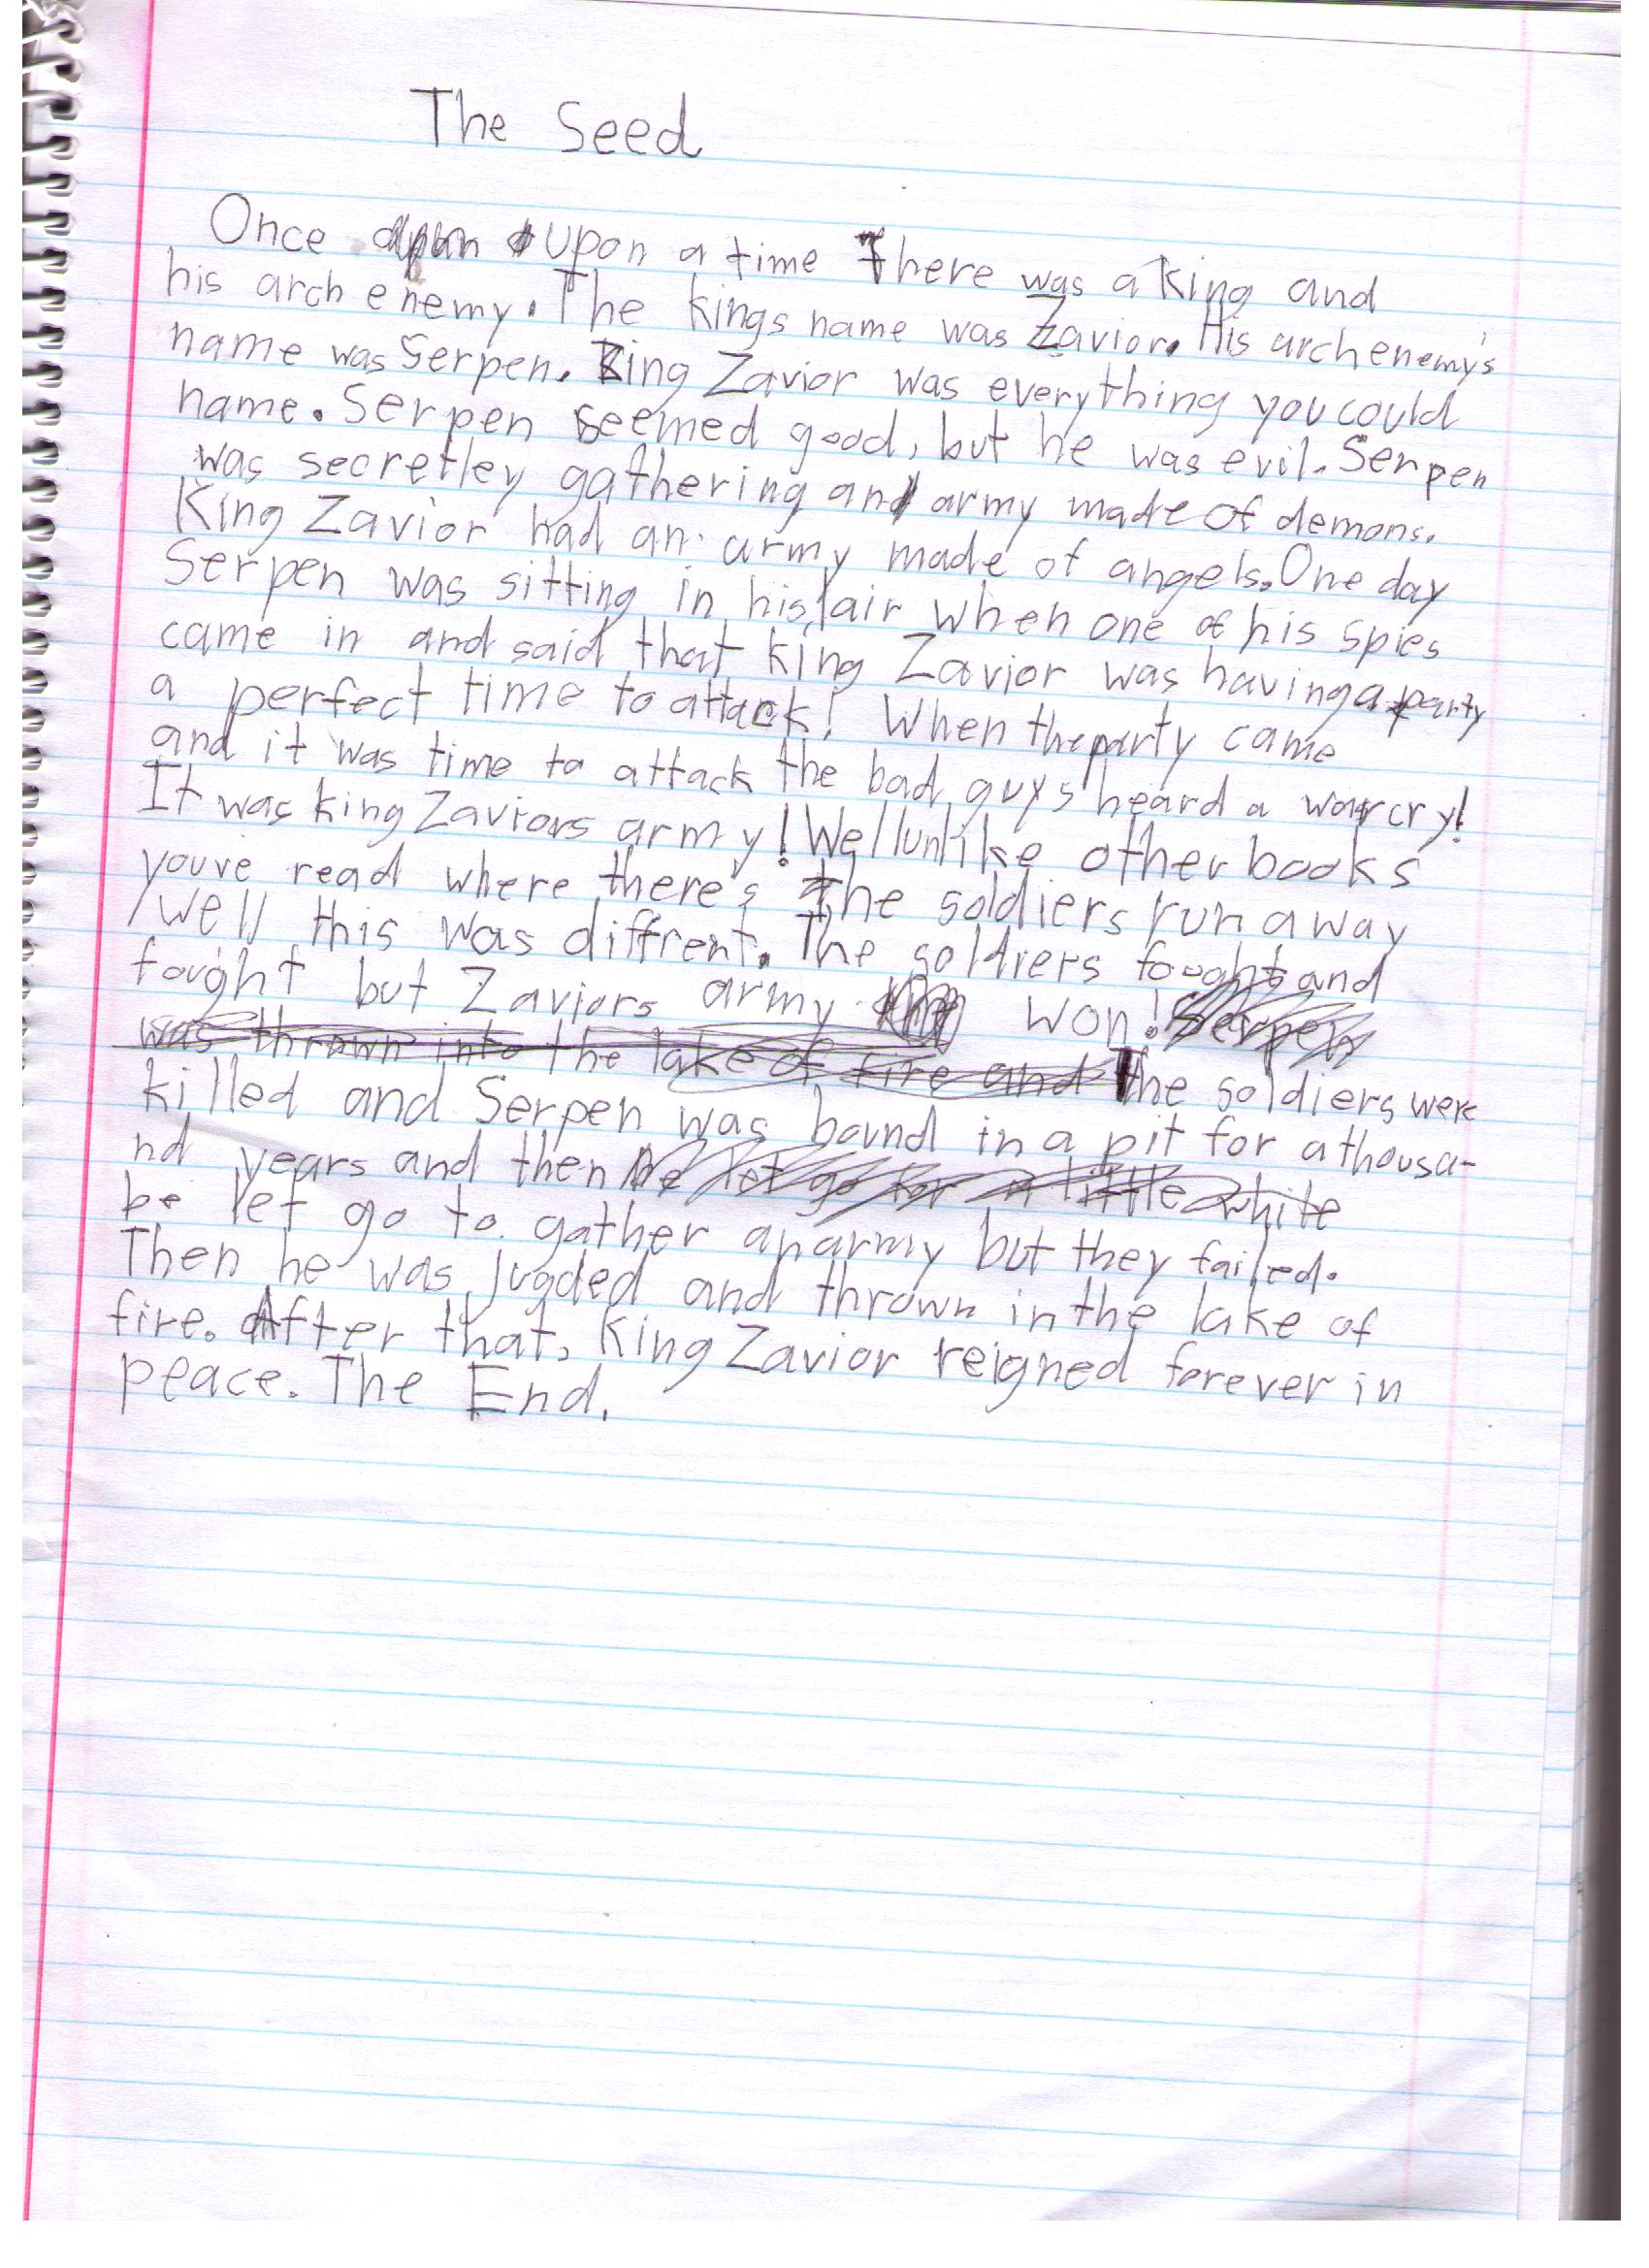 The Seed
Once upon a time There was a King and
his arch enemy. The kings name was Zavior. His archenemy's
name was Serpen. King Zavior was everything you could
name. Serpen seemed good, but he was evil. Serpen
was secretley gathering an army made of demons.
King Zavior had an army made of angels. One day
Serpen was sitting in his lair when one of his spies
came in and said that king Zavior was having a party
a perfect time to attack! When the party came
and it was time to attack the bad guys heard a warcry!
It was king Zaviors army! Well unlike other books
youve read where there's the soldiers run away
well this was diffrent. The soldiers fought and
fought but Zaviors army won! Serpen
was thrown into the lake of fire and The soldiers were
killed and Serpen was bound in a pit for a thousa-
nd years and then be let go for a little while
be let go to gather an army but they failed.
Then he was jugded and thrown in the lake of
fire. After that, King Zavior reigned forever in
peace. The End.